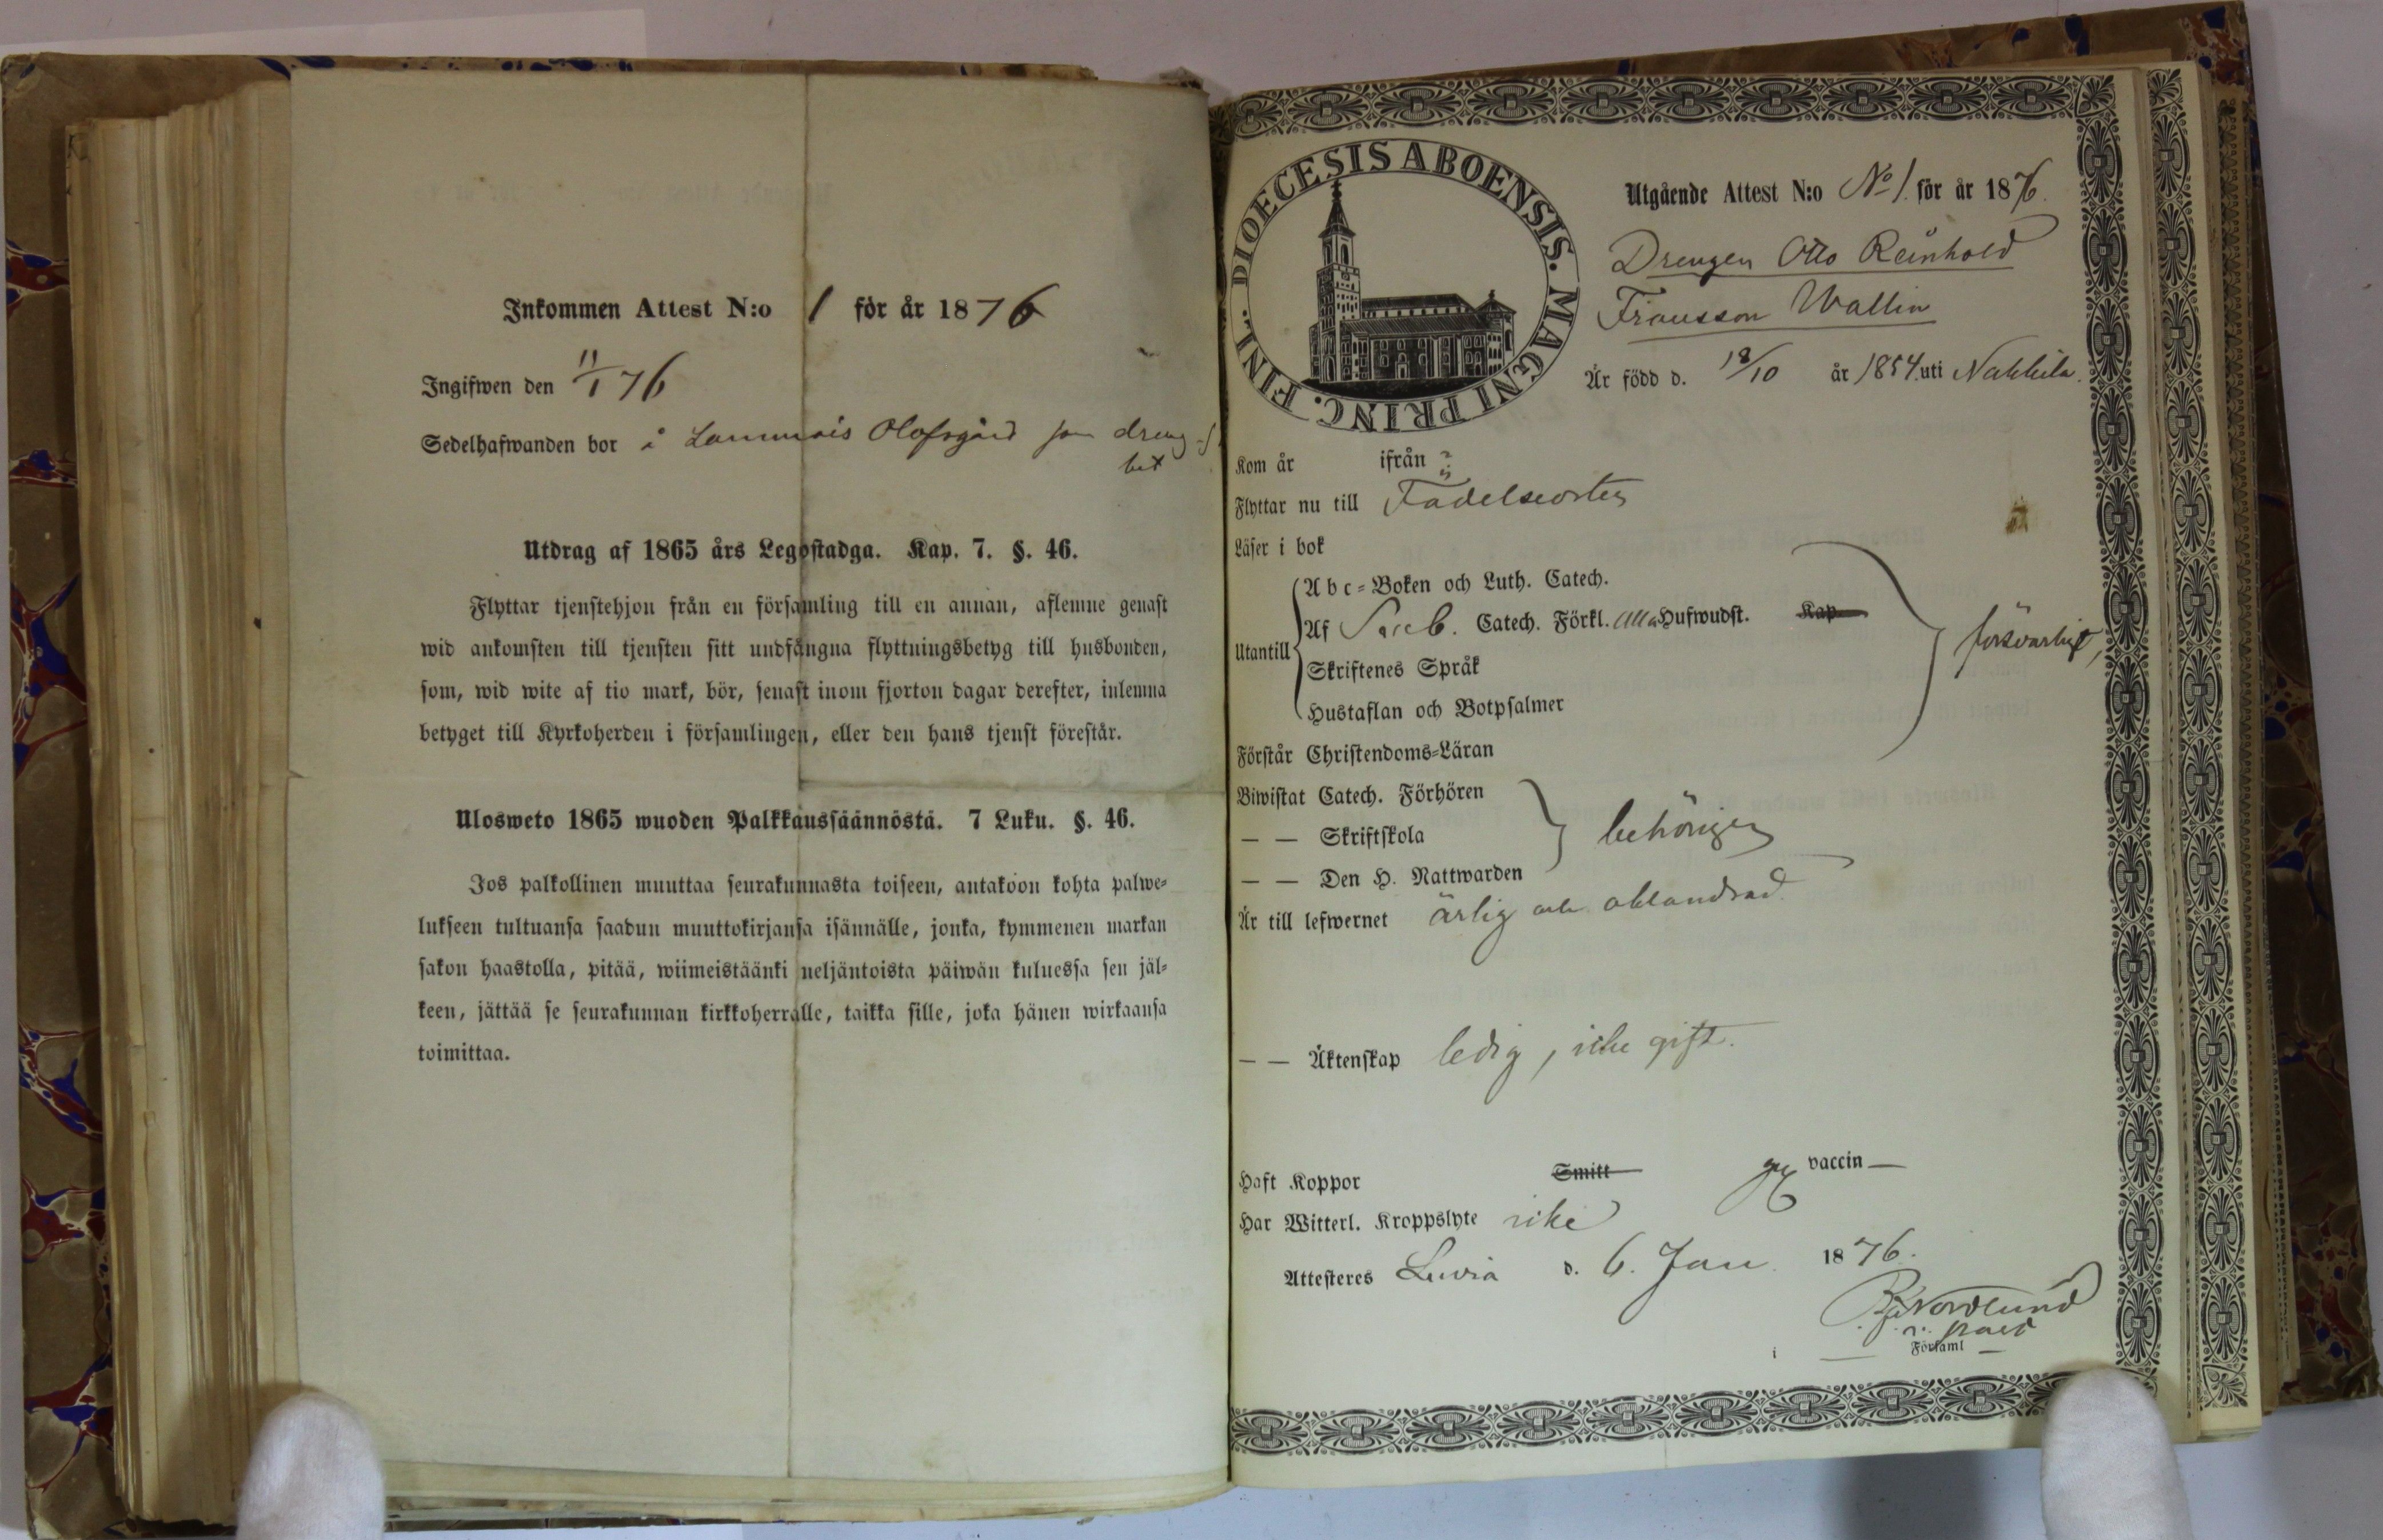 Inkommen Attest N:o 1 för år 1876
Ingifwen den 11/1 76
Sedelhafwanden bor å Olofsgård som dreng
Utdrag af 1865 års Legostadga. Kap. 7. §. 46.
Flyttar tjenstehjon från en församling till en annan, aflemne genast
wid ankomsten till tjensten sitt undfångna flyttningsbetyg till husbonden,
som, wid wite af tio mark, bör, senast inom fjorton dagar derefter, inlemna
betyget till Kyrkoherden i församlingen, eller den hans tjenst förestår.
Ulosweto 1865 wuoden Palkkaussäännöstä. 7 Luku. §. 46.
Jos palkollinen muuttaa seurakunnasta toiseen, antakoon kohta palwe-
lukseen tultuansa saadun muuttokirjansa isännälle, jonka, kymmenen markan
sakon haastolla, pitää, wiimeistäänki neljäntoista päiwän kuluessa sen jäl-
keen, jättää se seurakunnan kirkkoherralle, taikka sille, joka hänen wirkaansa
toimittaa.
DIOECESIS ABOENSIS. MAGNI PRINC. FINL.
Utgående Attest N:o No 1. för år 1876.
Drengen Otto Reinhold
Fransson Wallin
Är född d. 18/10 år 1854. uti Nakkila.
Kom år ifrån ?
Flyttar nu till Födelseorten
Läser i bok
Utantill
Abc-Boken och Luth. Catech.
Af Sveb. Catech. Förkl. alla Hufwudst. Kap.
försvarligt,
Skriftenes Språk
Hustaflan och Botpsalmer
Förstår Christendoms-Läran
Biwistat Catech. Förhören
— — Skriftskola behörigen
— — Den H. Nattwarden
Är till lefwernet ärlig och oklandrad.
— — Äktenskap ledig, icke gift.
Haft Koppor Smitt vaccin —
Har Witterl. Kroppslyte icke
Attesteres Luvia d. 6. Jan. 1876.
Nordlund
i — Församl —